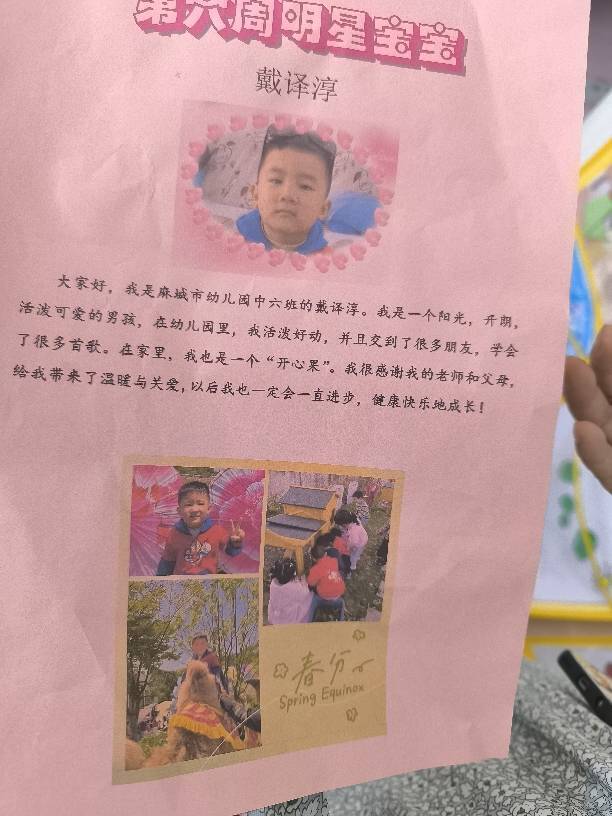 第六周明星宝宝
戴译淳
大家好，我是麻城市幼儿园中六班的戴译淳。我是一个阳光，开朗，
活泼可爱的男孩，在幼儿园里，我活泼好动，并且交到了很多朋友，学会
了很多首歌。在家里，我也是一个“开心果”。我很感谢我的老师和父母，
给我带来了温暖与关爱，以后我也一定会一直进步，健康快乐地成长！
春分
Spring Equinox